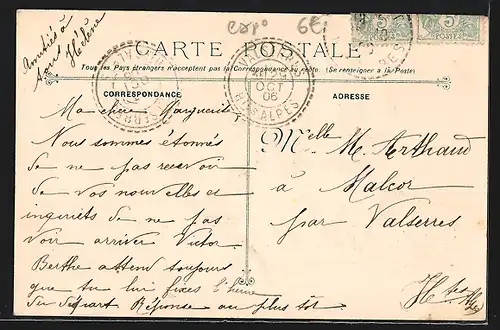 Amitiés à
Hélène
6€
CARTE POSTALE
Tous les Pays étrangers n'acceptent pas la Correspondance au recto. (Se renseigner à la Poste)
CORRESPONDANCE
ADRESSE
OCT
06
HTES ALPES
5
POSTES
5
POSTES
Ma chère Marguerite,
Nous sommes étonnés
de ne pas recevoir
de vos nouvelles et
inquiets de ne pas
voir arriver Victor.
Berthe attend toujours
que tu lui fixes l'heure
du départ Réponse au plus tôt.
Melle M. Arthaud
à Malcor
par Valserres
Htes Alpes